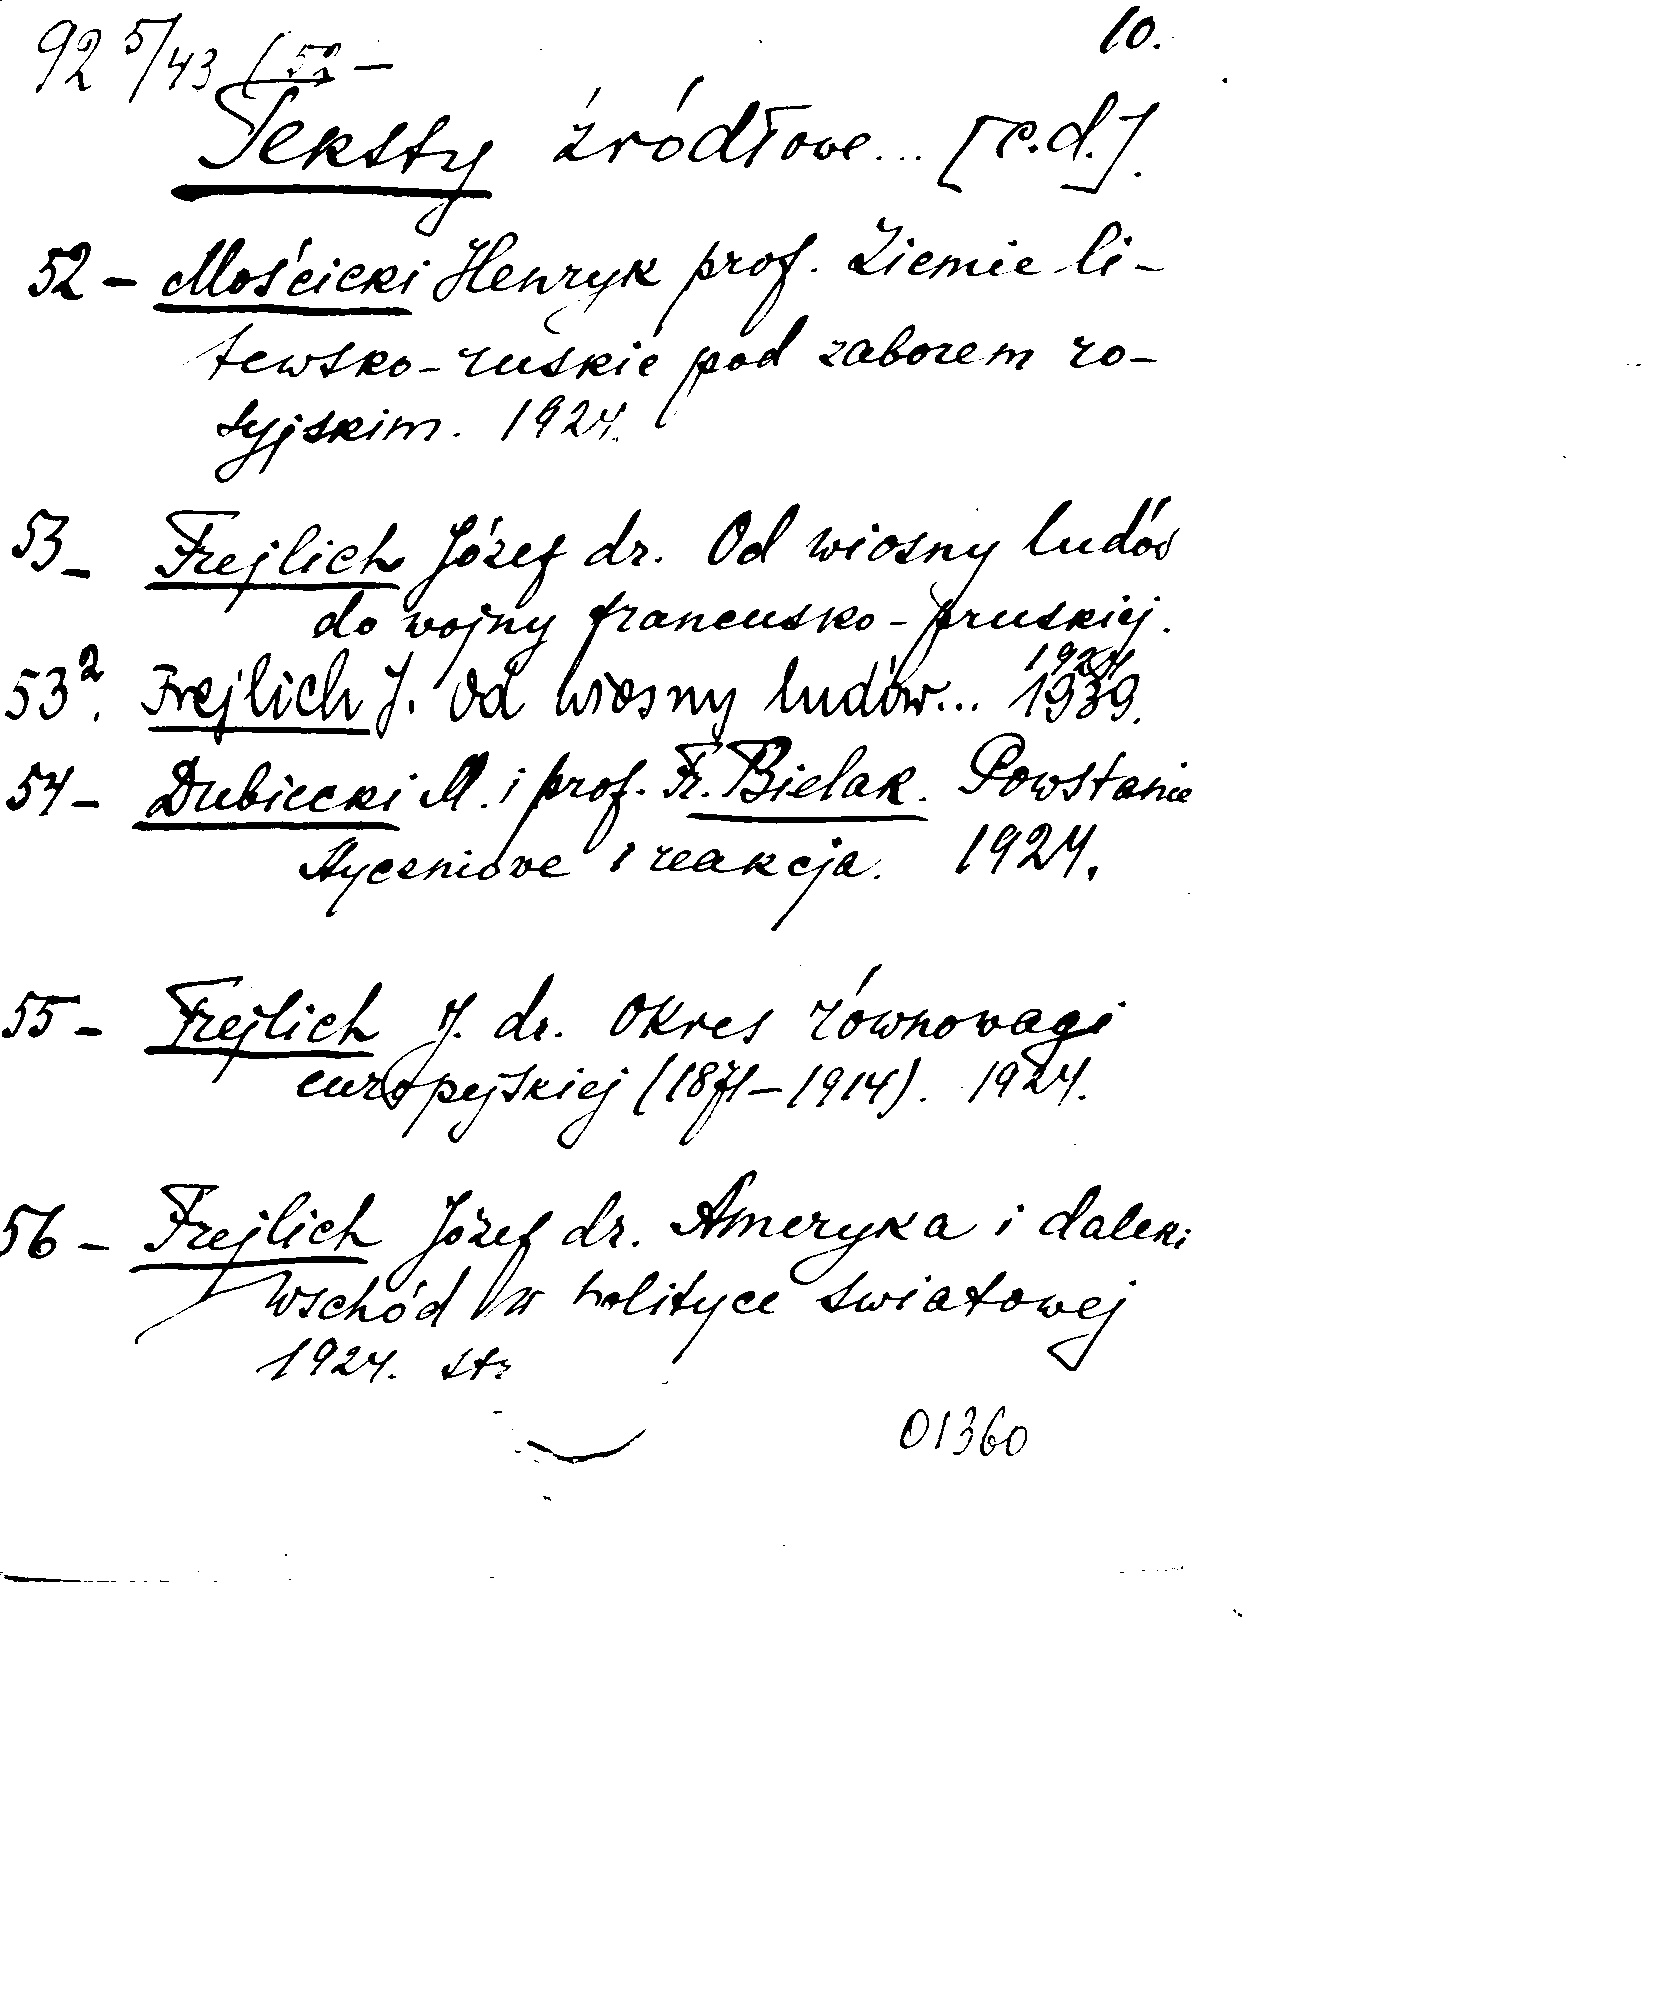 92 5/43 (52 -
10.
Teksty źródłowe... [c.d.].
52 - Mościcki Henryk prof. Ziemie li-
tewsko-ruskie pod zaborem ro-
syjskim. 1924.
53 - Frejlich Józef dr. Od wiosny ludów
do wojny francusko-pruskiej.
1924.
53². Frejlich J. Od wiosny ludów... 1939.
54 - Dubiecki M. i prof. Fr. Bielak. Powstanie
styczniowe i reakcja. 1924.
55 - Frejlich J. dr. Okres równowagi
europejskiej (1871-1914). 1924.
56 - Frejlich Józef dr. Ameryka i daleki
Wschód w polityce światowej
1924. str
01360